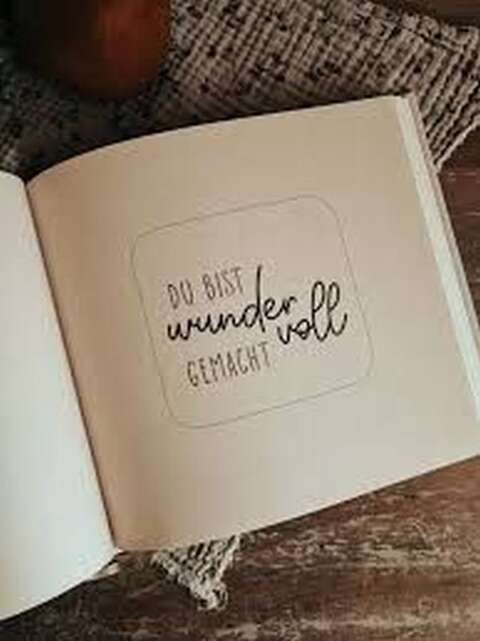 DU BIST
wunder
voll
GEMACHT